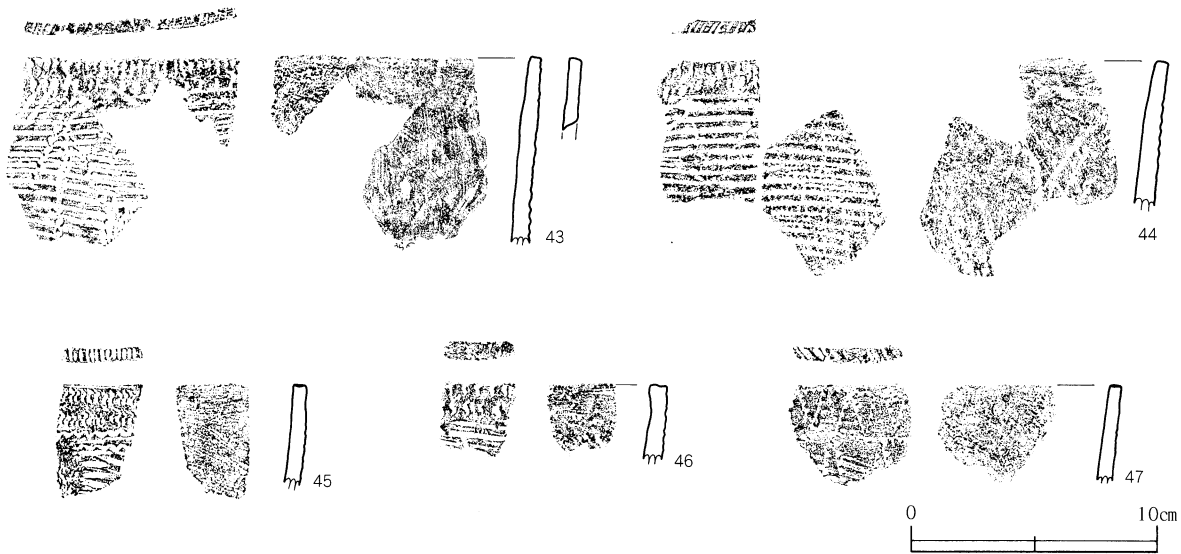 43
44
45
46
47
0 10cm